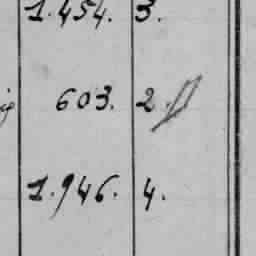 1.454. 3.
603. 2.
1.946. 4.